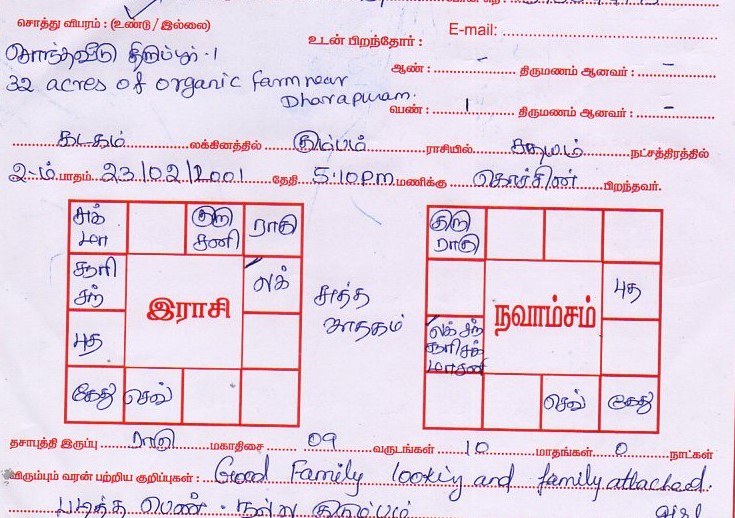 சொத்து விபரம் : (உண்டு / இல்லை)
சொந்தவீடு திருப்பூர் - 1
32 acres of organic farm near
Dharapuram.
உடன் பிறந்தோர் :
E-mail:
ஆண் : - திருமணம் ஆனவர் : -
பெண் : 1 திருமணம் ஆனவர் : -
கடகம் லக்கினத்தில் கும்பம் ராசியில் சதயம் நட்சத்திரத்தில்
2-ம் பாதம் 23/02/2001 தேதி 5:10pm மணிக்கு கொச்சின் பிறந்தவர்.
சுக் மா
குரு சனி
ராகு
சூரி சந்
லக்
புத
கேது
செவ்
இராசி
சுத்த ஜாதகம்
குரு ராகு
புத
லக் சந் சூரி சுக் மா சனி
செவ்
கேது
நவாம்சம்
தசாபுத்தி இருப்பு ராகு மகாதிசை 09 வருடங்கள் 10 மாதங்கள் 0 நாட்கள்
விரும்பும் வரன் பற்றிய குறிப்புகள் : Good Family looking and family attached.
படித்த பெண் - நல்ல குடும்பம் girl